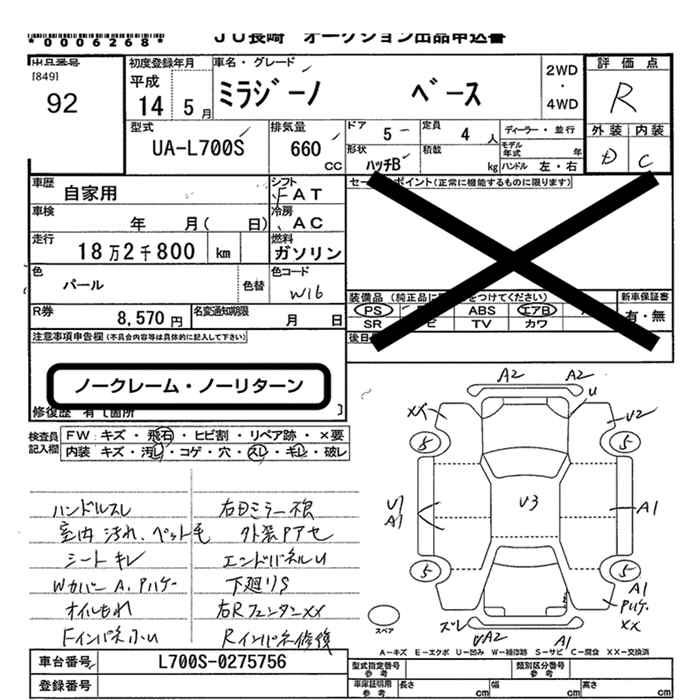 *0006268*
JU長崎 オークション出品申込書
出品番号
[849]
92
初度登録年月
平成
14 5月
車名・グレード
ミラジーノ ベース
2WD
・
4WD
評価点
R
外装 内装
D C
型式
UA-L700S
排気量
660
CC
ドア
5
定員
4 人
ディーラー・並行
形状
ハッチB
積載
kg
モデル
年式
年
ハンドル 左・右
車歴
自家用
シフト
FAT
セールスポイント(正常に機能するものに限ります)
車検
年 月( 日)
冷房
AC
走行
18万2千800 km
燃料
ガソリン
色
パール
色替
色コード
W16
装備品 (純正品に をつけてください)
新車保証書
PS ABS エアB
有・無
SR TV カワ
R券
8,570円
名変通知期限
月 日
後日
注意事項申告欄(不具合内容等は具体的に記入して下さい)
ノークレーム・ノーリターン
修復歴 有 [箇所 ]
検査員
記入欄
FW: キズ・飛石・ヒビ割・リペア跡・×要
内装 キズ・汚レ・コゲ・穴・スレ・キレ・破レ
ハンドルスレ
右Dミラー根
室内汚れ、ペット毛
外装Pアセ
シートキレ
エンドパネルU
WカバーA、Pハゲ
下廻りS
オイルもれ
右RフェンダーXX
Fインパネ小U
Rインパネ修復
A2 A2
U
XX
U2
5 5
U1
A1
U3
A1
5 5
A1
Pハゲ
XX
ズレ
UA2 A1
スペア
A-キズ E-エクボ U-凹み W-補修跡 S-サビ C-腐食 XX-交換済
車台番号
L700S-0275756
登録番号
型式指定番号
参考
類別区分番号
参考
車庫証明用
参考
長さ cm
幅 cm
高さ cm